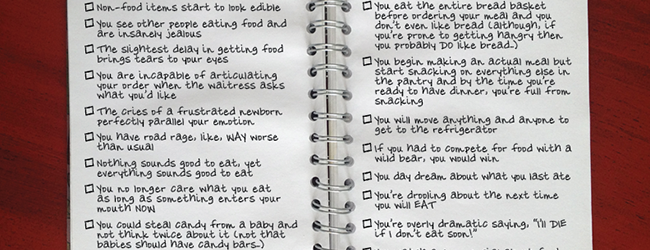 Non-food items start to look edible
You see other people eating food and
are insanely jealous
The slightest delay in getting food
brings tears to your eyes
You are incapable of articulating
your order when the waitress asks
what you'd like
The cries of a frustrated newborn
perfectly parallel your emotion
You have road rage, like, WAY worse
than usual
Nothing sounds good to eat, yet
everything sounds good to eat
You no longer care what you eat
as long as something enters your
mouth NOW
You could steal candy from a baby and
not think twice about it (not that
babies should have candy bars..)
You eat the entire bread basket
before ordering your meal and you
don't even like bread (although, if
you're prone to getting hangry then
you probably DO like bread..)
You begin making an actual meal but
start snacking on everything else in
the pantry and by the time you're
ready to have dinner, you're full from
snacking
You will move anything and anyone to
get to the refrigerator
If you had to compete for food with a
wild bear, you would win
You day dream about what you last ate
You're drooling about the next time
you will EAT
You're overly dramatic saying, "I'll DIE
if I don't eat soon!"